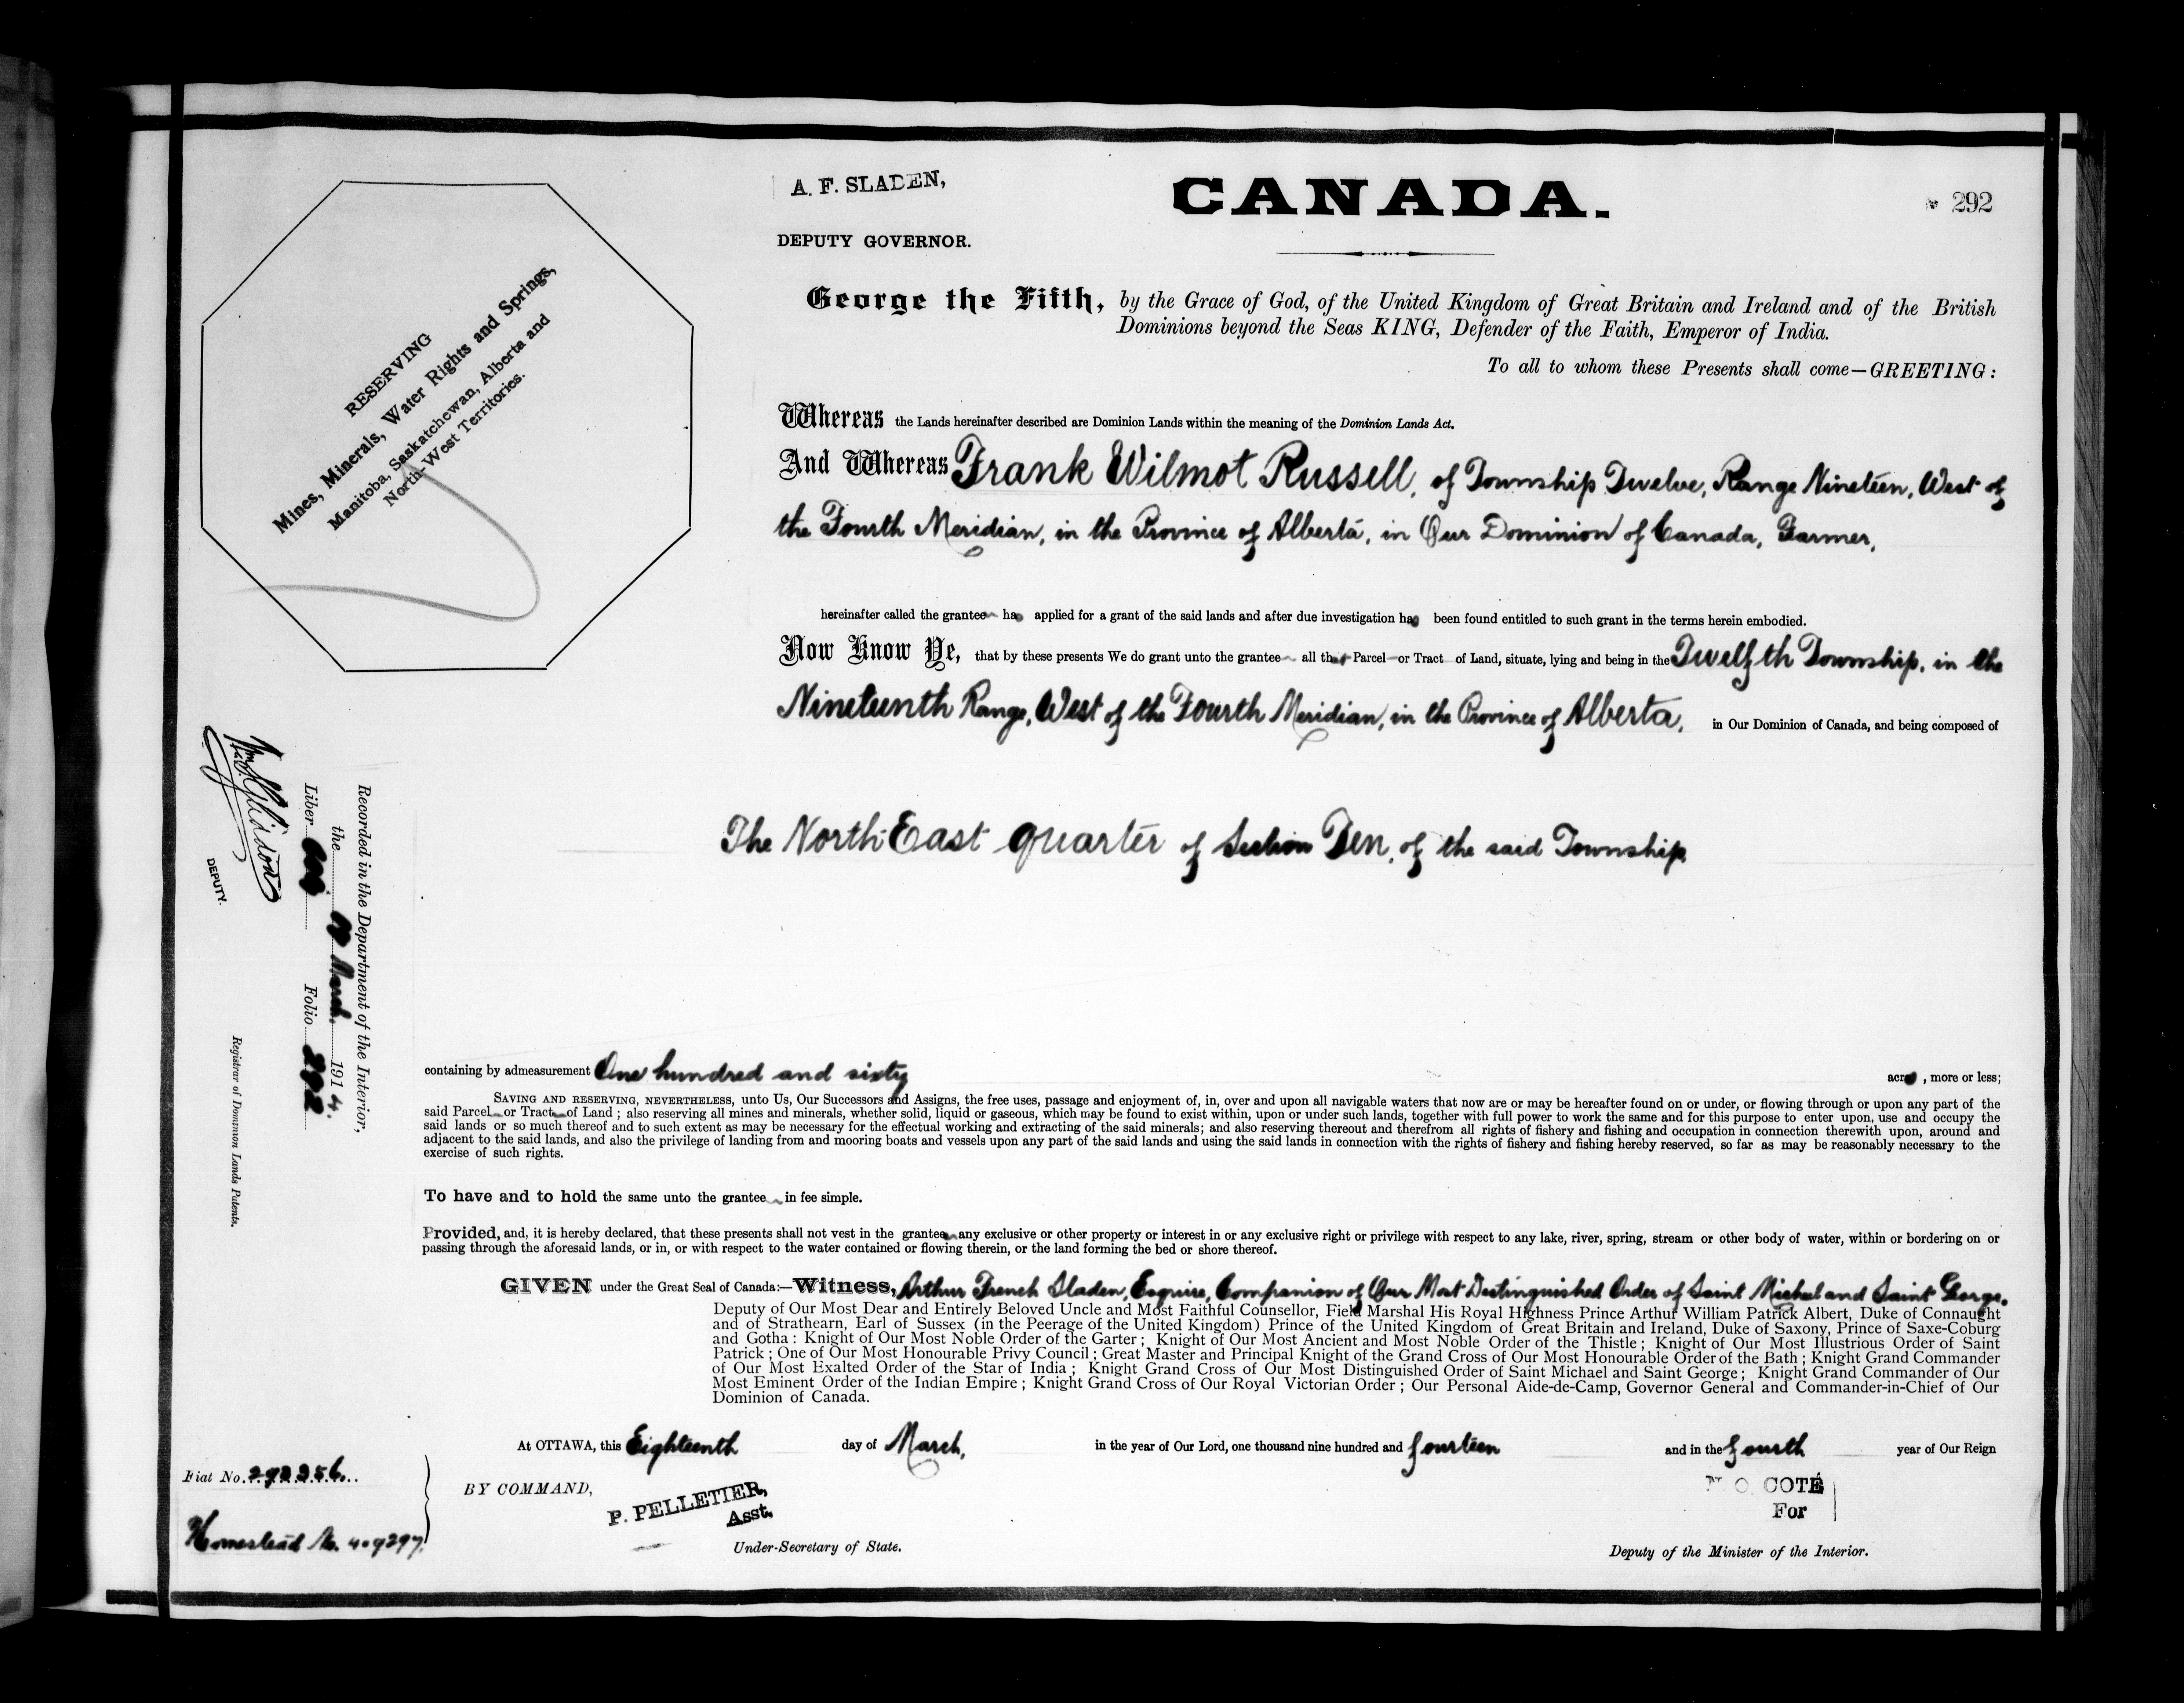 A. F. SLADEN,
DEPUTY GOVERNOR.
CANADA.
292
RESERVING
Mines, Minerals, Water Rights and Springs,
Manitoba, Saskatchewan, Alberta and
North-West Territories.
George the Fifth, by the Grace of God, of the United Kingdom of Great Britain and Ireland and of the British
Dominions beyond the Seas KING, Defender of the Faith, Emperor of India.
To all to whom these Presents shall come—GREETING:
Whereas the Lands hereinafter described are Dominion Lands within the meaning of the Dominion Lands Act.
And Whereas Frank Wilmot Russell, of Township Twelve, Range Nineteen, West of
the Fourth Meridian, in the Province of Alberta, in Our Dominion of Canada, Farmer,
hereinafter called the grantee has applied for a grant of the said lands and after due investigation has been found entitled to such grant in the terms herein embodied.
Now Know Ye, that by these presents We do grant unto the grantee all that Parcel or Tract of Land, situate, lying and being in the Twelfth Township, in the
Nineteenth Range, West of the Fourth Meridian, in the Province of Alberta, in Our Dominion of Canada, and being composed of
The North East quarter of Section Ten, of the said Township,
containing by admeasurement One hundred and sixty acres, more or less;
SAVING AND RESERVING, NEVERTHELESS, unto Us, Our Successors and Assigns, the free uses, passage and enjoyment of, in, over and upon all navigable waters that now are or may be hereafter found on or under, or flowing through or upon any part of the
said Parcel or Tract of Land; also reserving all mines and minerals, whether solid, liquid or gaseous, which may be found to exist within, upon or under such lands, together with full power to work the same and for this purpose to enter upon, use and occupy the
said lands or so much thereof and to such extent as may be necessary for the effectual working and extracting of the said minerals; and also reserving thereout and therefrom all rights of fishery and fishing and occupation in connection therewith upon, around and
adjacent to the said lands, and also the privilege of landing from and mooring boats and vessels upon any part of the said lands and using the said lands in connection with the rights of fishery and fishing hereby reserved, so far as may be reasonably necessary to the
exercise of such rights.
To have and to hold the same unto the grantee in fee simple.
Provided, and, it is hereby declared, that these presents shall not vest in the grantee any exclusive or other property or interest in or any exclusive right or privilege with respect to any lake, river, spring, stream or other body of water, within or bordering on or
passing through the aforesaid lands, or in, or with respect to the water contained or flowing therein, or the land forming the bed or shore thereof.
GIVEN under the Great Seal of Canada:—Witness, Arthur French Sladen, Esquire, Companion of Our Most Distinguished Order of Saint Michael and Saint George,
Deputy of Our Most Dear and Entirely Beloved Uncle and Most Faithful Counsellor, Field Marshal His Royal Highness Prince Arthur William Patrick Albert, Duke of Connaught
and of Strathearn, Earl of Sussex (in the Peerage of the United Kingdom) Prince of the United Kingdom of Great Britain and Ireland, Duke of Saxony, Prince of Saxe-Coburg
and Gotha: Knight of Our Most Noble Order of the Garter; Knight of Our Most Ancient and Most Noble Order of the Thistle; Knight of Our Most Illustrious Order of Saint
Patrick; One of Our Most Honourable Privy Council; Great Master and Principal Knight of the Grand Cross of Our Most Honourable Order of the Bath; Knight Grand Commander
of Our Most Exalted Order of the Star of India; Knight Grand Cross of Our Most Distinguished Order of Saint Michael and Saint George; Knight Grand Commander of Our
Most Eminent Order of the Indian Empire; Knight Grand Cross of Our Royal Victorian Order; Our Personal Aide-de-Camp, Governor General and Commander-in-Chief of Our
Dominion of Canada.
At OTTAWA, this Eighteenth day of March, in the year of Our Lord, one thousand nine hundred and fourteen and in the fourth year of Our Reign
BY COMMAND,
P. PELLETIER,
Asst.
Under-Secretary of State.
N. O. COTÉ
For
Deputy of the Minister of the Interior.
Recorded in the Department of the Interior,
the March, 1914.
Liber Folio 292
DEPUTY.
Registrar of Dominion Lands Patents.
Fiat No. 292256
Homestead No. 409297